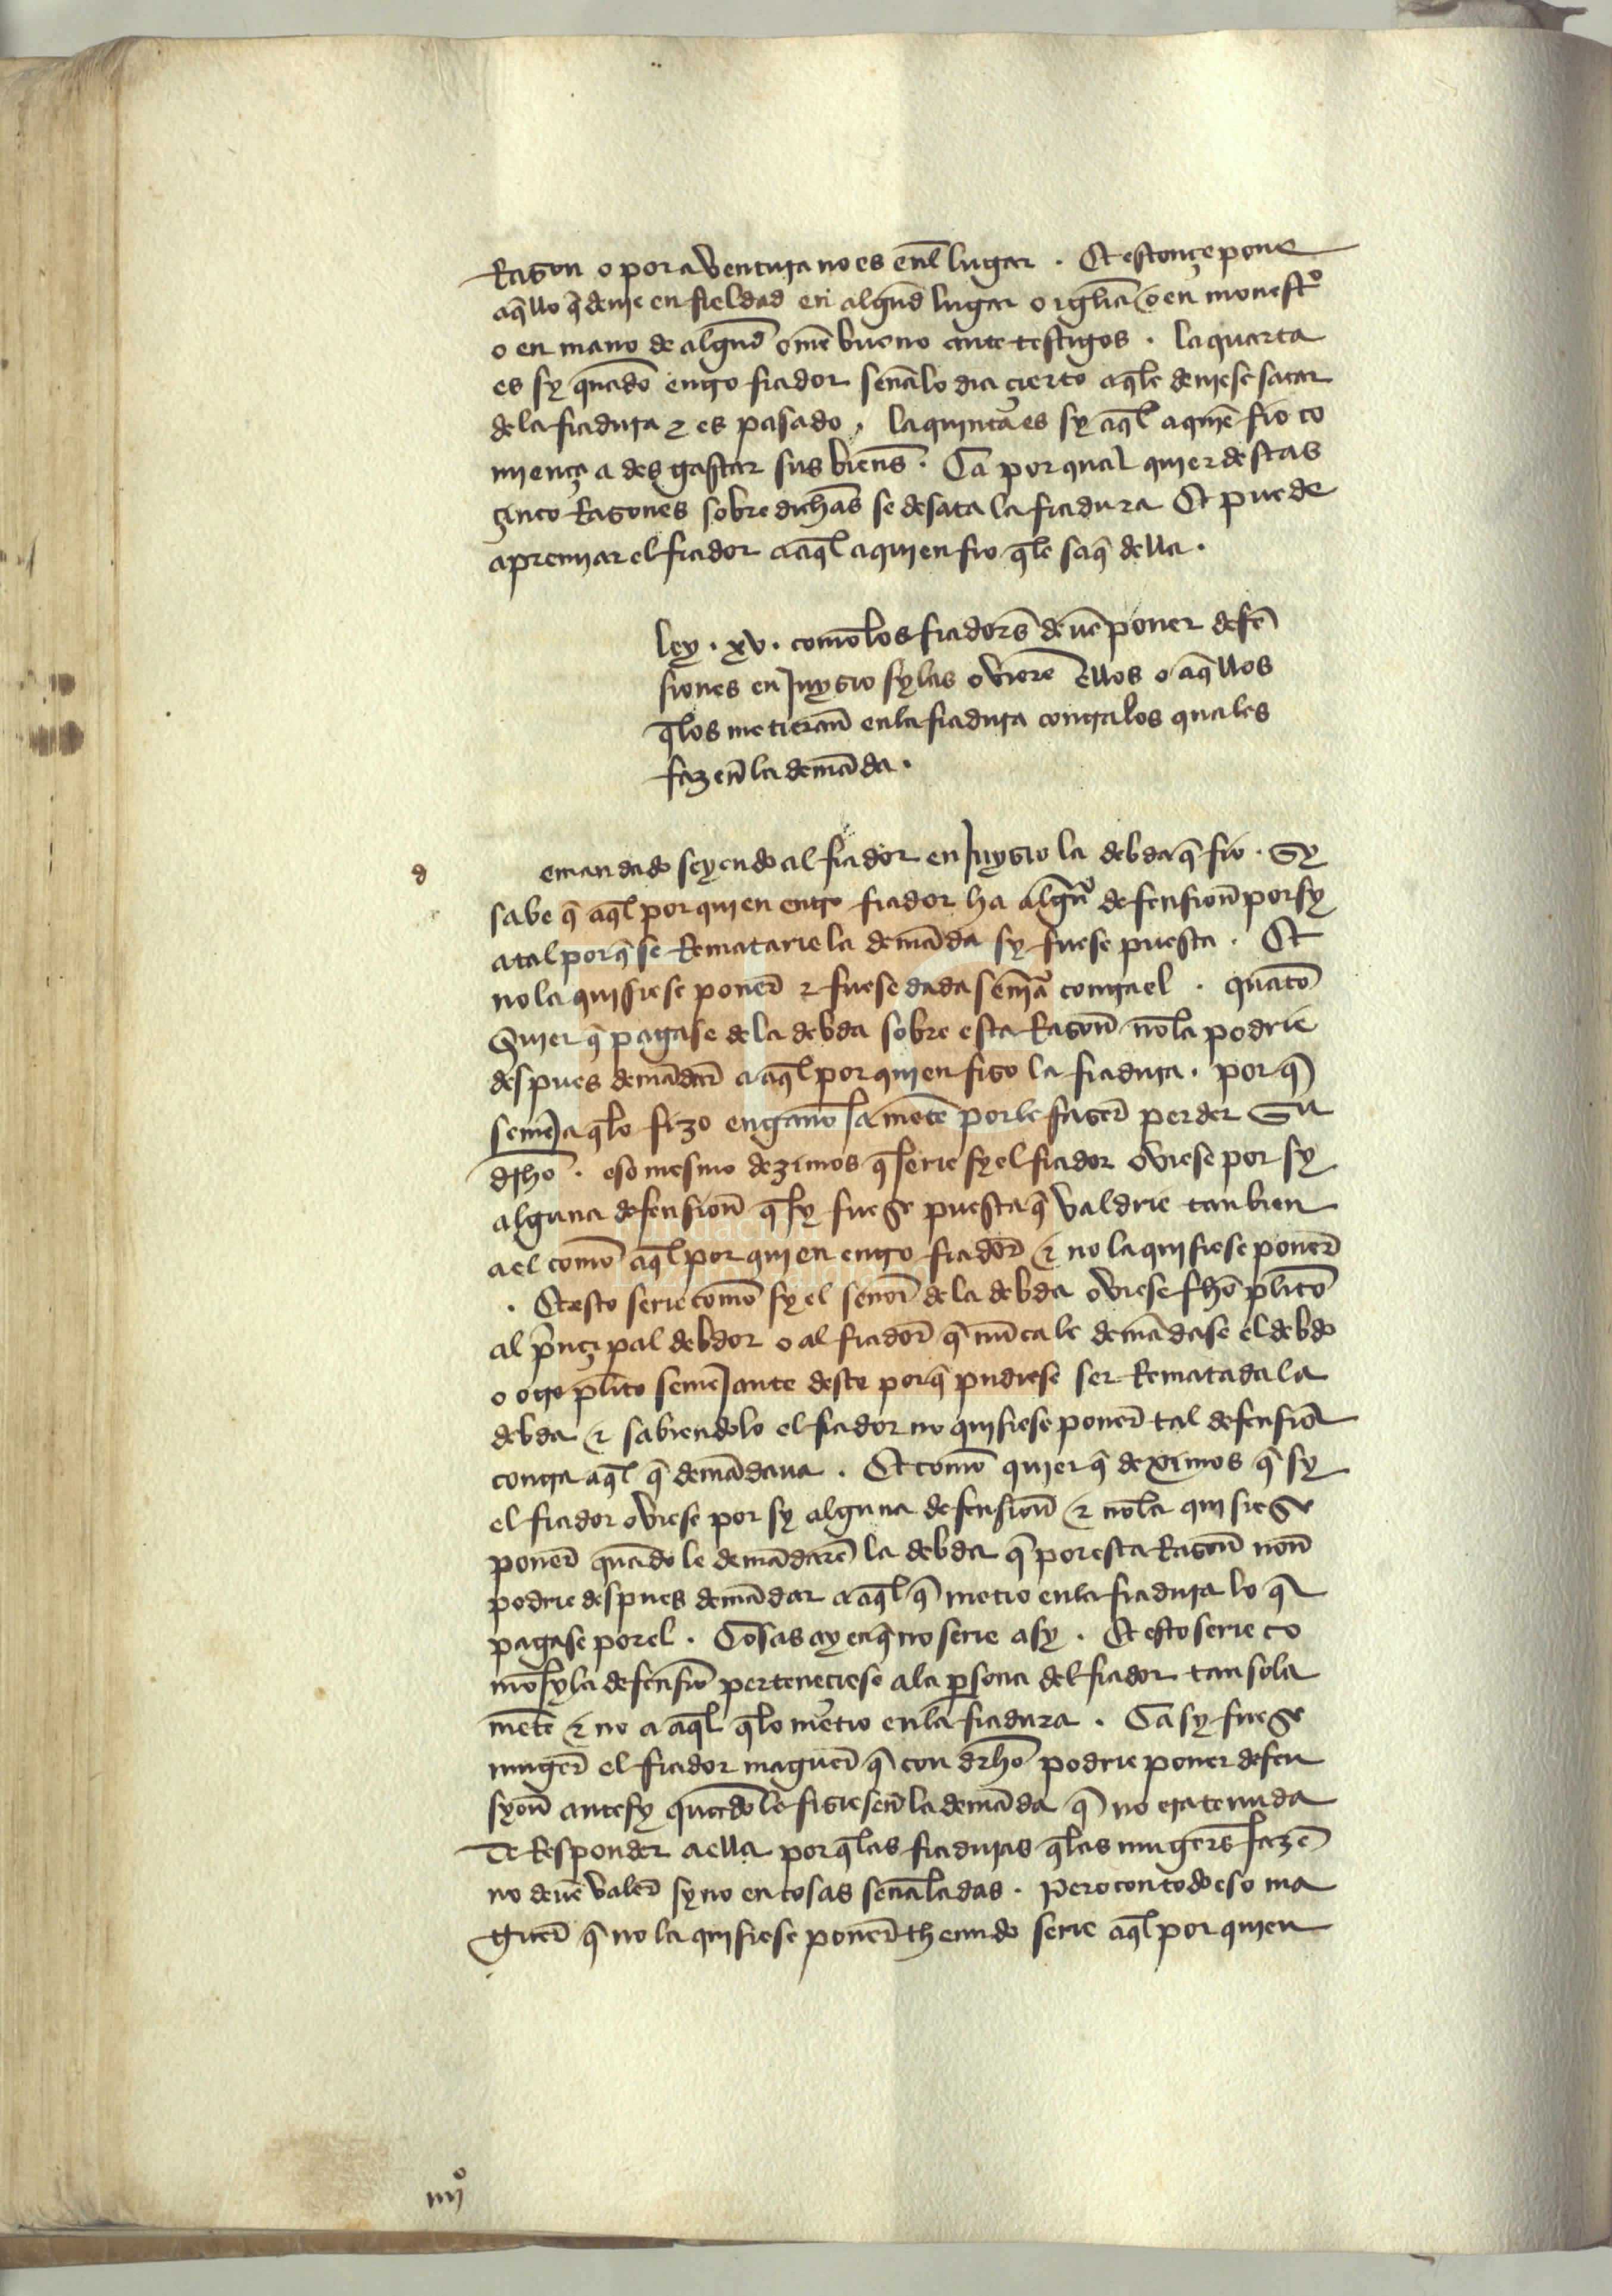 Razon o por aventura no es enl lugar . Et estonçe pone
aq̄llo q̄ deue en fieldad en algūd lugar o igłia o en monest̊o
o en mano de algūd om̄e bueno ante testigos . la quarta
es sy quādo entro fiador señalo dia çierto a q̄le deuiese sacar
de la fiadura ⁊ es pasado . la quinta es sy aq̄l a quiē fio co
miença a desgastar sus bien̄s . Ca por qual quier destas
çinco Razones sobre dichas se desata la fiadura Et puede
apremiar el fiador a aq̄l a quien fio q̄le saq̄ della .
ley . xv . com̄o los fiadors̄ deuē poner defē
siones en Juyzio sy las ovierē ellos o aq̄llos
q̄los metierān en la fiadura contra los quales
fazen̄ la demāda .
d
emandado seyendo al fiador en Juyzio la debda q̄ fio . Sy
sabe q̄ aq̄l por quien entro fiador ha algūa defension̄ por sy
atal porq̄ se Rematarie la demāda sy fuese puesta . Et
no la quisiese poner̄ ⁊ fuese dada sen̄ia contra el . quāto
Quier q̄ pagase de la debda sobre esta Razon̄ nōla podrie
despues demādar̄ a aq̄l por quien fizo la fiadura . por q̄
semeia q̄lo fizo engañosa mētē por le fazer̄ perder Su
dr̄ho . eso mesmo dezimos q̄ serie sy el fiador oviese por sy
alguna defension̄ q̄ sy fuese puesta q̄ valdrie tan bien
a el com̄o aq̄l por quien entro fiador̄ ⁊ no la quisiese poner̄
. Et esto serie com̄o sy el señor̄ de la debda oviese fh̄o pl̄ito
al p̄nçipal debdor o al fiador̄ q̄ nūca le demādase el debdo
o otro pl̄ito semeiante deste porq̄ pudiese ser Rematada la
debda ⁊ sabiendolo el fiador no quisiese poner̄ tal defensiō
contra aq̄l q̄ demādaua . Et com̄o quier q̄ deximos q̄ sy
el fiador oviese por sy alguna defension̄ ⁊ nōla quisiese
poner̄ quādo le demādarē la debda q̄ por esta Razon̄ non̄
podrie despues demādar a aq̄l q̄ metio en la fiadura lo q̄
pagase por el . Cosas ay en q̄ no serie asy . Et esto serie co
mo sy la defensiō pertenesciese a la p̄sona del fiador tan sola
mētē ⁊ no a aq̄l q̄lo metio en la fiadura . Ca sy fuese
muger̄ el fiador maguer̄ q̄ con dr̄ho podrie poner defen
syon̄ ante sy quādo le fiziesen̄ la demāda q̄ no era tenuda
de Responder a ella por q̄las fiaduras q̄las mugers̄ fazē
no deuē valer̄ sy no en cosas señaladas . Pero con todo eso ma
guer̄ q̄ no la quisiese poner̄ thenudo serie aq̄l por quien
iiij̊